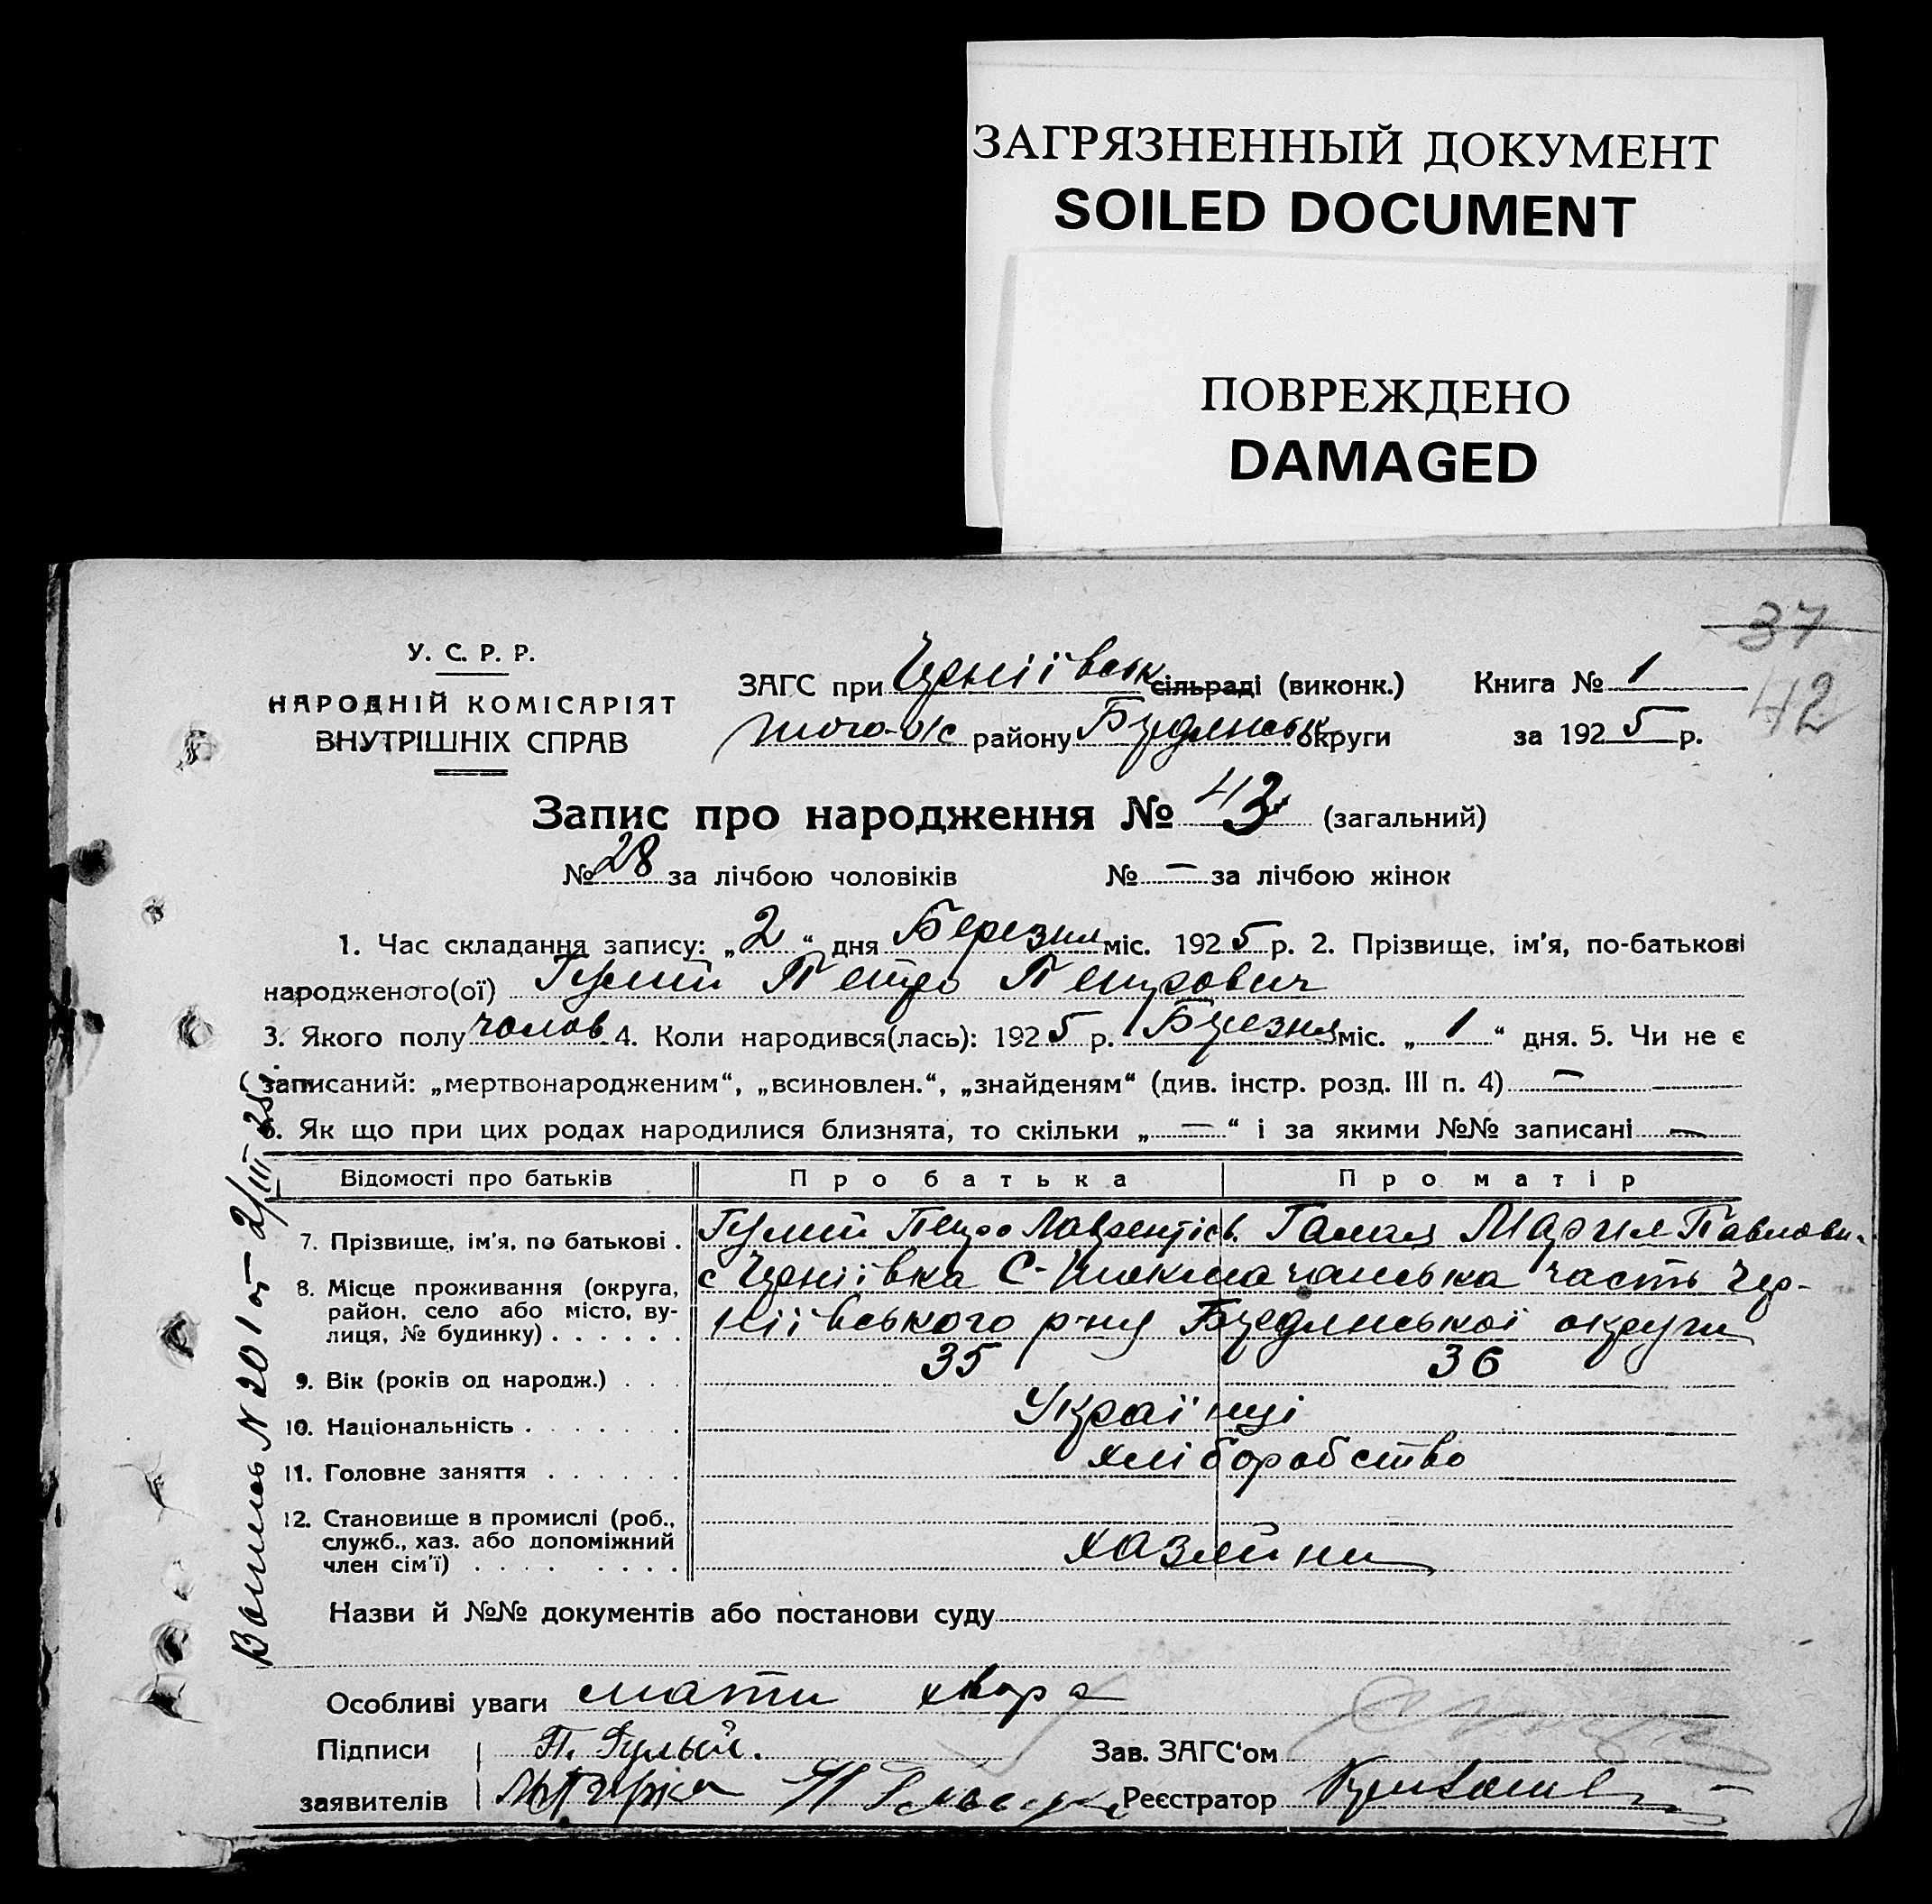 ЗАГРЯЗНЕННЫЙ ДОКУМЕНТ
SOILED DOCUMENT
ПОВРЕЖДЕНО
DAMAGED
37
42
У. С. Р. Р.
НАРОДНІЙ КОМІСАРІЯТ
ВНУТРІШНІХ СПРАВ
ЗАГС при Черніївськ сільраді (виконк.)
того-ж району Бердянськ округи
Книга № 1
за 1925 р.
Запис про народження № 43 (загальний)
№ 28 за лічбою чоловіків № — за лічбою жінок
1. Час складання запису: „2“ дня Березня міс. 1925 р. 2. Прізвище, ім'я, по-батькові
народженого(ої) Гулий Петро Петрович
3. Якого полу чолов 4. Коли народився(лась): 1925 р. Березня міс. „1“ дня. 5. Чи не є
записаний: „мертвонародженим“, „всиновлен.“, „знайденям“ (див. інстр. розд. III п. 4) —
6. Як що при цих родах народилися близнята, то скільки „—“ і за якими №№ записані —
Відомості про батьків Про батька Про матір
7. Прізвище, ім'я, по батькові . Гулий Петро Лаврентієв. Гамая Мария Павлови
8. Місце проживання (округа, район, село або місто, вулиця, № будинку) . . . . . . с Черніївка С-Токмачанська часть Чер-
ніївського р-ну Бердянської округи
9. Вік (років од народж.) . . . 35 36
10. Національність . . . . . . . Українці
11. Головне заняття . . . . . . хліборобство
12. Становище в промислі (роб., служб., хаз. або допоміжний член сім'ї) . . . . . . . . хазяїни
Назви й №№ документів або постанови суду
Особливі уваги мати хвора
Підписи П. Гулый.
заявителів
Зав. ЗАГС'ом
Реєстратор
№ 201 от 2/III 25